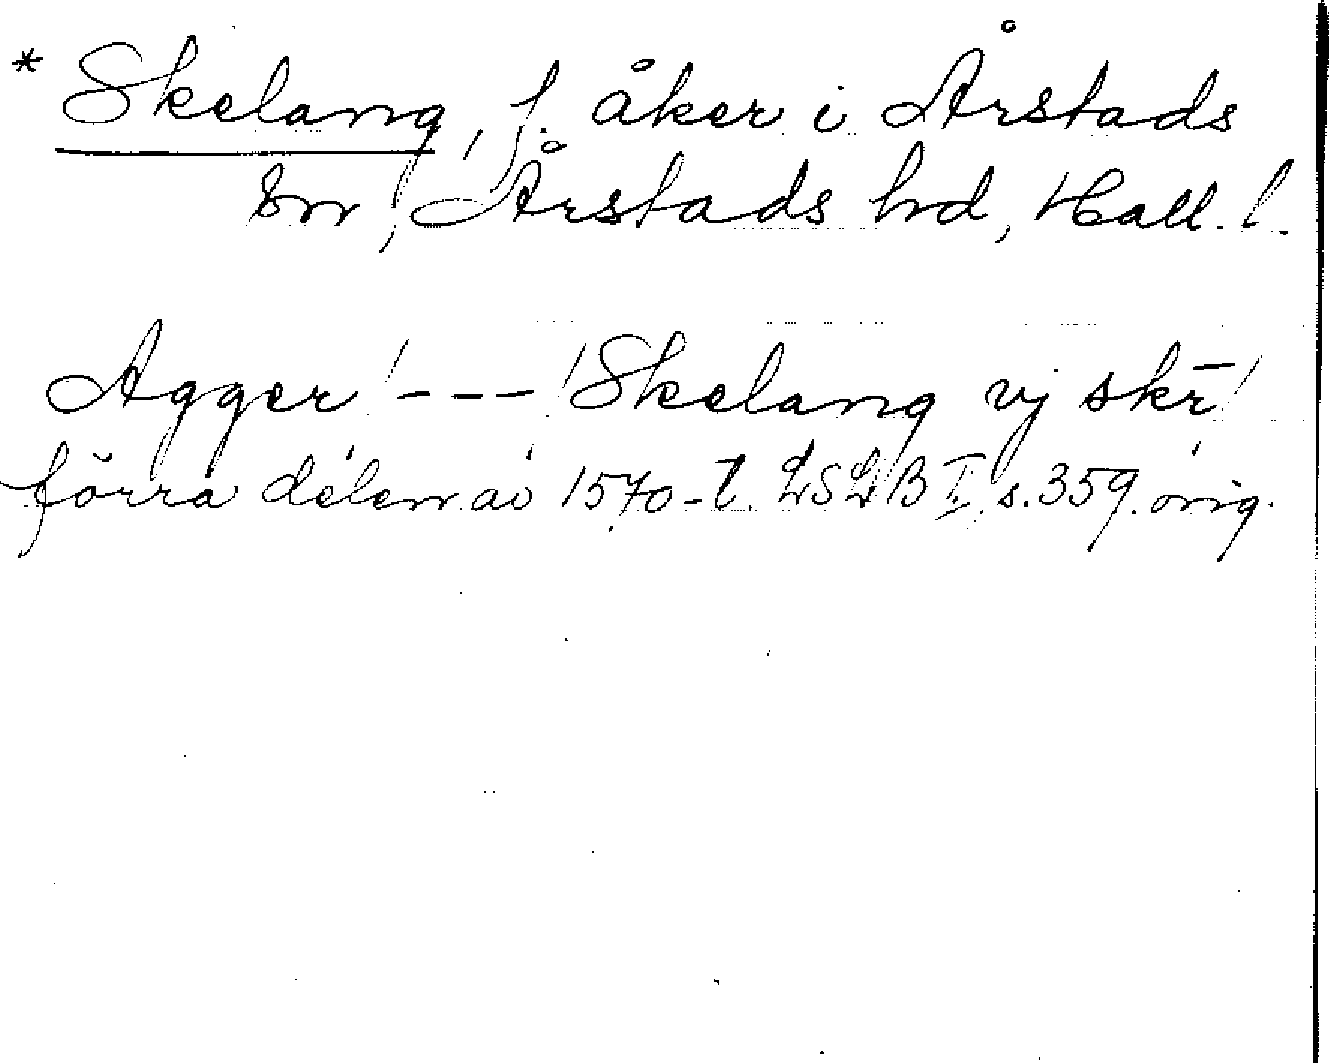 * Skelang, f. åker i Årstads
sn, Årstads hd, Hall. l.
Agger --- Skelang vj skr̄
förra delen av 1570-t. LSLB I, s. 359. orig.